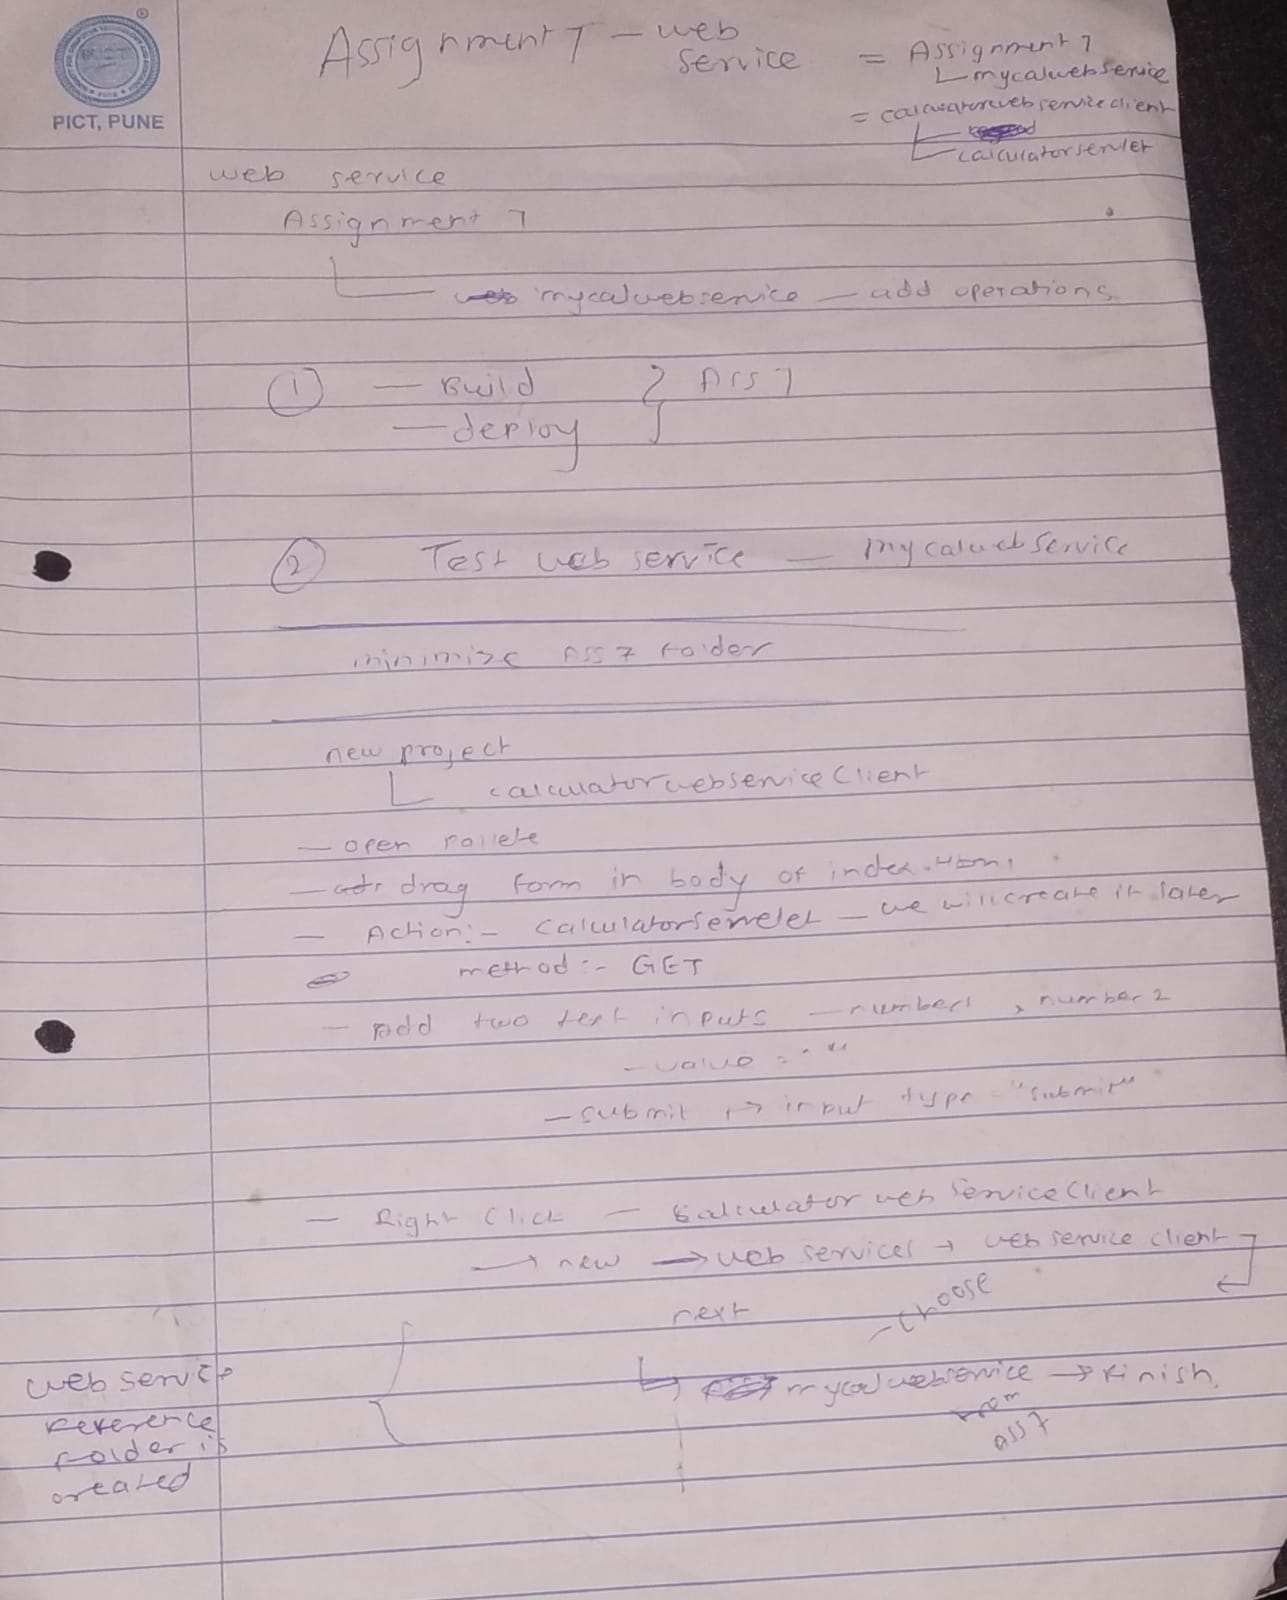 PICT, PUNE
Assignment 7 - web
service
= Assignment 7
mycalwebservice
= calculatorwebserviceclient
calculatorservlet
web service
Assignment 7
mycalwebservice - add operations
① - Build } Ass 7
- deploy
② Test web service - mycalwebservice
minimize Ass 7 folder
new project
calculatorwebserviceClient
- open pallete
- drag form in body of index.html
- Action:- CalculatorServelet - we will create it later
method:- GET
- Add two text inputs - number1, number2
- value = ""
- submit → input type = "submit"
- Right Click - Calculator web service Client
→ new → web services → web service client
next
- choose
mycalwebservice → Finish.
from
ass 7
web service
Reference
folder is
created